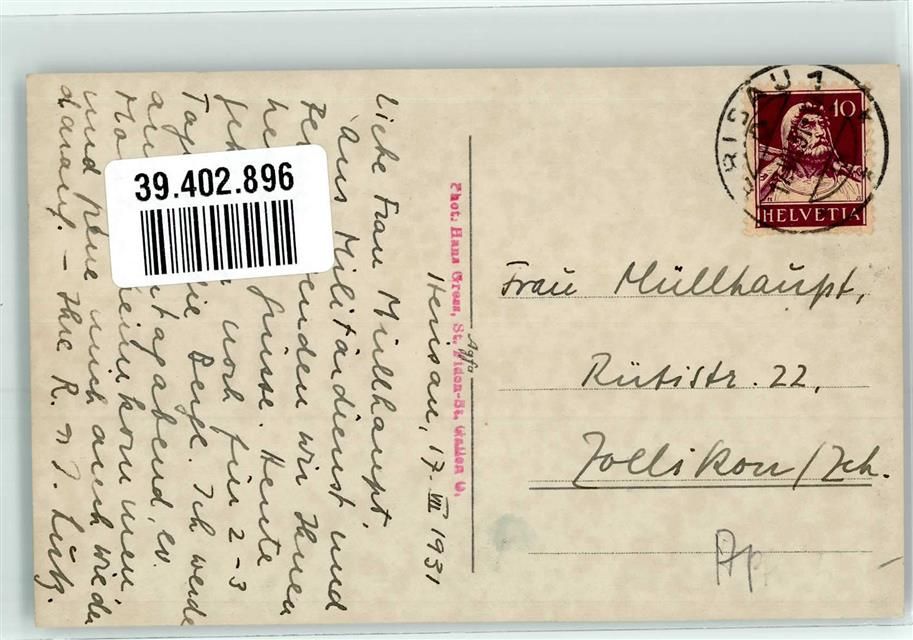 39.402.896
Herisau, 17. VII 1931
Liebe Frau Müllhaupt,
Aus Militärdienst und
senden wir Ihnen
grüsse. Heute
noch für 2-3
Tag die Berge. Ich werde
am tagabend, ev.
Mo heimkommen,
und freue mich auch wieder
darauf. – Ihre R. & J. Lutz.
Phot. Hans Gross, St. Fiden-St. Gallen O.
Agfa
HERISAU 1
10
HELVETIA
Frau Müllhaupt,
Rütistr. 22,
Zollikon/Zch.
Ap